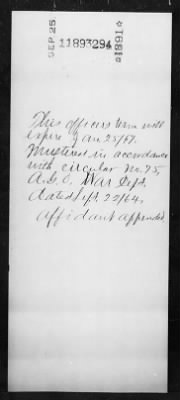 SEP 25
11893294
*1891*
This officers term will
expire Jan 25/67.
Mustered in accordance
with circular No. 75,
A.G.O. War Dept.
dated Sept. 22/64,
Affidavit appended.